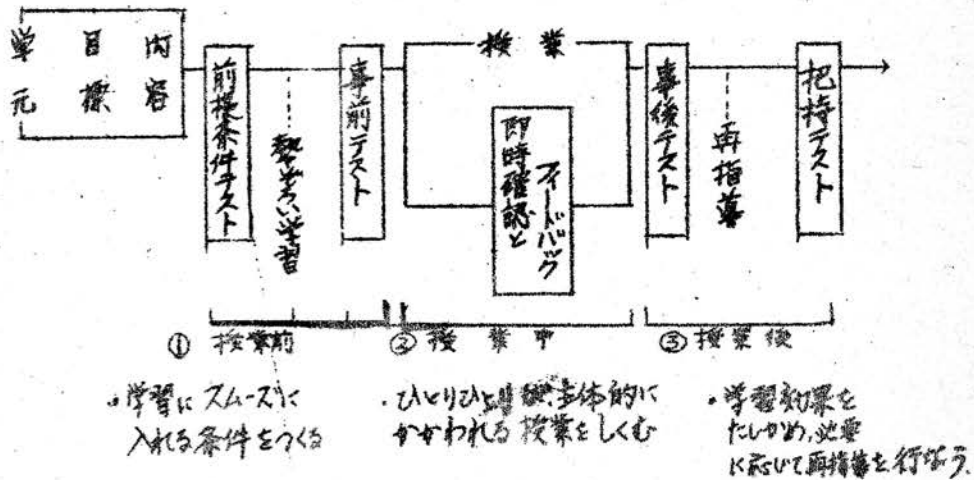 単元
目標
内容
前提条件テスト
勢ぞろい学習
事前テスト
授業
即時確認と
フィードバック
事後テスト
再指導
把持テスト
① 授業前
② 授業中
③ 授業後
・学習にスムーズに
入れる条件をつくる
・ひとりひとりが、主体的に
かかわれる授業をしくむ
・学習効果を
たしかめ、必要
に応じて再指導を行なう。